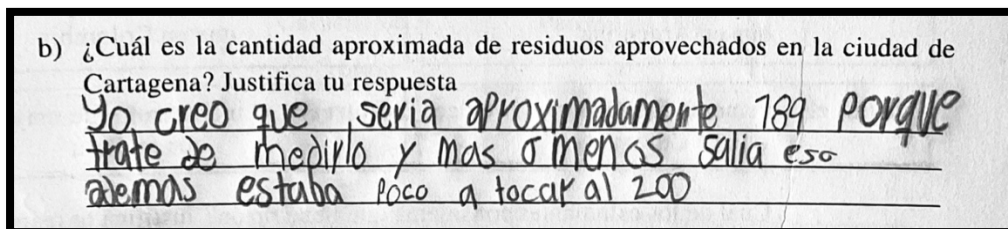 b) ¿Cuál es la cantidad aproximada de residuos aprovechados en la ciudad de
Cartagena? Justifica tu respuesta
Yo creo que seria aproximadamente 189 porque
trate de medirlo y mas o menos salia eso
ademas estaba poco a tocar al 200